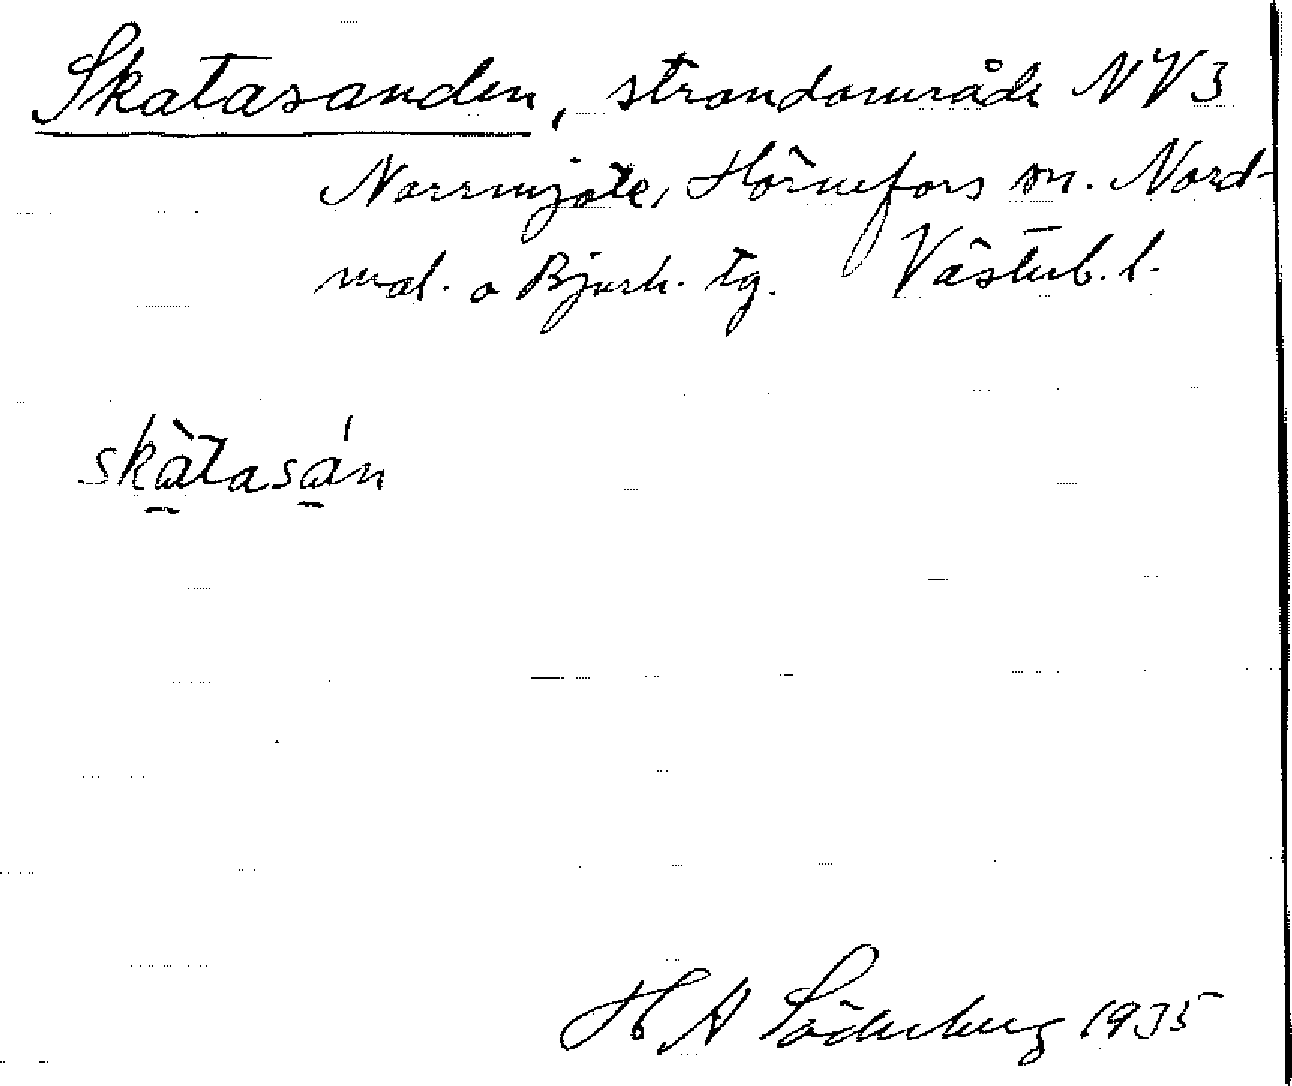 Skatasanden, strandområde NV3
Norrmjöle, Hörnefors sn. Nord-
mal. o Bjurh. tg. Västerb. l.
skàtasán
H A Söderberg 1935